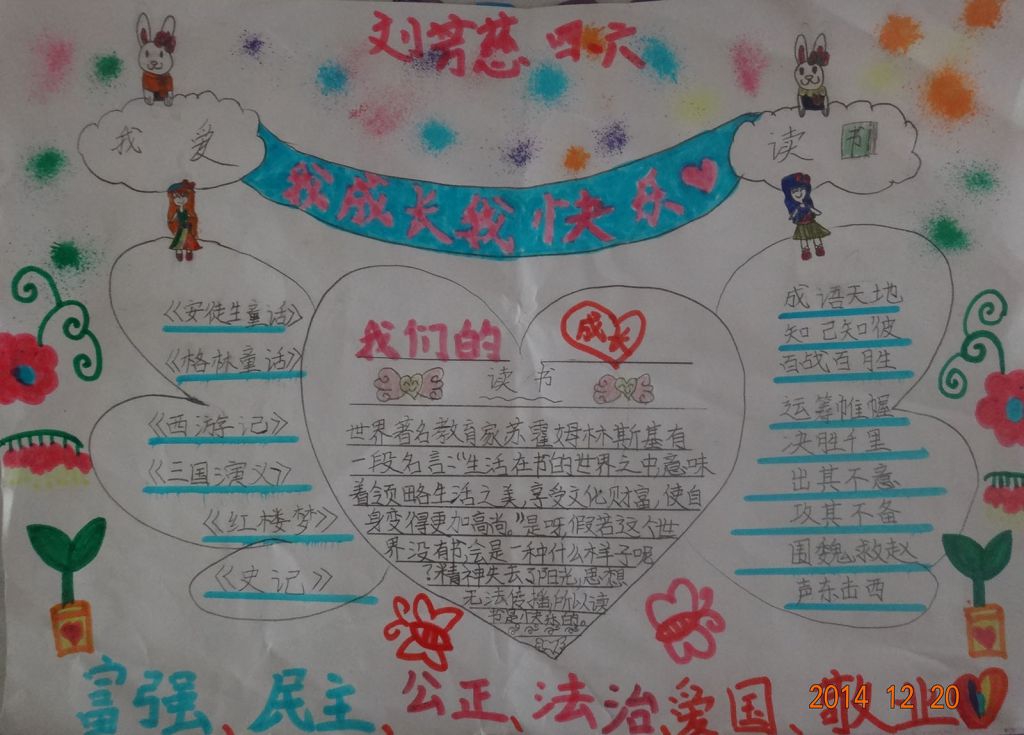 刘芳慈 四六
我 爱
读 书
我成长我快乐
《安徒生童话》
《格林童话》
《西游记》
《三国演义》
《红楼梦》
《史记》
我们的
成长
读 书
世界著名教育家苏霍姆林斯基有
一段名言:“生活在书的世界之中意味
着领略生活之美,享受文化财富,使自
身变得更加高尚。”是呀,假若这个世
界没有书会是一种什么样子呢
?精神失去了阳光,思想
无法传播,所以读
成语天地
知己知彼
百战百胜
运筹帷幄
决胜千里
出其不意
攻其不备
围魏救赵
声东击西
富强、民主、公正、法治、爱国、敬业
2014 12 20